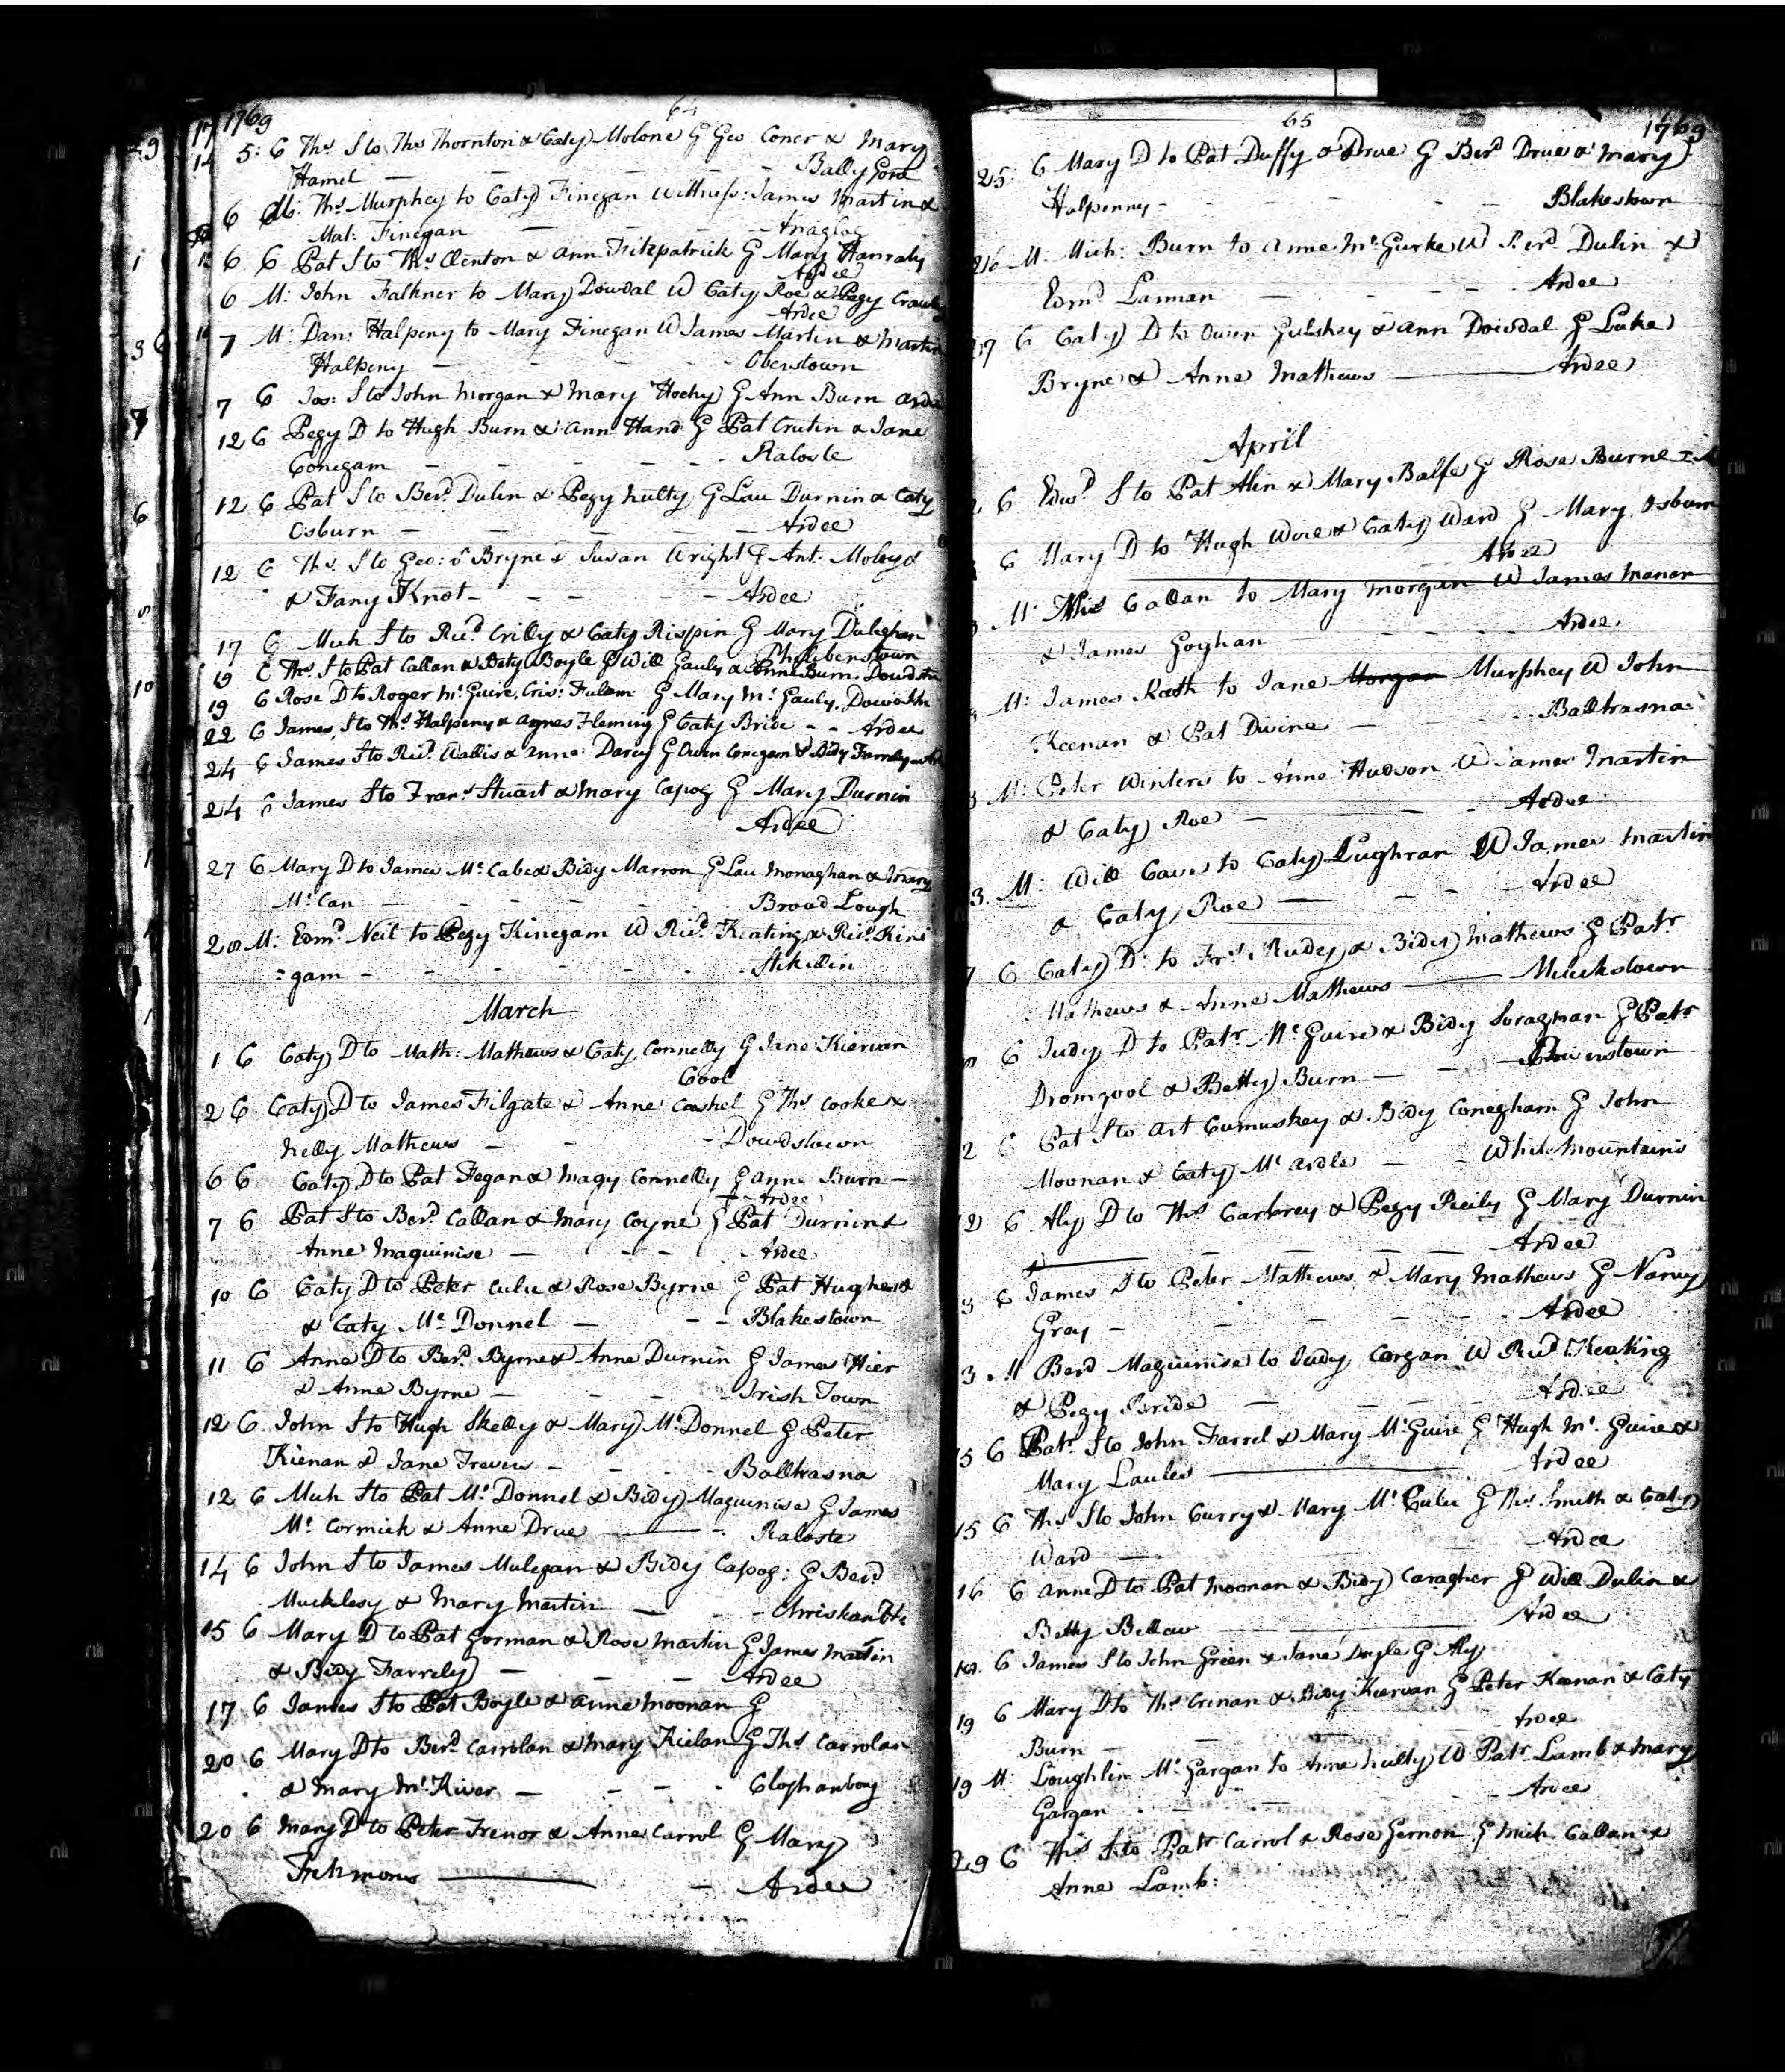 1769
64
5: C Ths S to Ths Thornton & Caty Molone G Geo Coner & Mary
Hamel — Bally Gora
6 M: Ths Murphey to Caty Finegan Witness: James Martin &
Mat: Finegan —
6 C Pat S to Ths Clenton & Ann Fitzpatrick G Mary Hanraty
Ardee
6 M: John Falkner to Mary Dowdal W Caty Roe & Pegy
Ardee
7 M: Dan: Halpeny to Mary Finegan W James Martin & Martin
Halpeny — Oberstown
7 C Jas: S to John Morgan & Mary Hoehy G Ann Burn Ardee
12 C Pegy D to Hugh Burn & Ann Hand G Pat Crutin & Jane
Conegam — Raloste
12 C Pat S to Berd Dulin & Pegy Nulty G Lau Durnin & Caty
Osburn — Ardee
12 C Ths S to Geo: o Bryne & Susan Wright G Ant: Moloy &
& Fany Knot — Ardee
17 C Mich S to Ricd Crilly & Caty Rispin G Mary Dulighan
Philibenstown
19 C Ths S to Pat Callan & Bety Boyle G Will Gauly & Anne Burn Dowdstn
19 C Rose D to Roger Mc Guire, Cris: Fulam G Mary Mc Gauly,
22 C James S to Ths Halpeny & Agnes Fleming G Caty Bride - Ardee
24 C James S to Ricd Wallis & Anne Darcy G Owen Conegam & Bidy
24 C James S to Frans Stuart & Mary Capog G Mary Durnin
Ardee
27 C Mary D to James Mc Cabe & Bidy Marron G Lau Monaghan & Mary
Mc Can — Broad Lough
28 M: Edmd Neil to Pegy Kinegam W Ricd Keating & Ricd Kini
=gam — Stikillin
March
1 C Caty D to Math: Mathews & Caty Connelly G Jane Kiervan
Cool
2 C Caty D to James Filgate & Anne Cashel G Ths Cooke &
Nelly Mathews — Dowdstown
6 C Caty D to Pat Fegan & Magy Connelly G Anne Burn —
Ardee
7 C Pat S to Berd Callan & Mary Coyne G Pat Durnin &
Anne Maguinise — Ardee
10 C Caty D to Peter Culu & Rose Byrne G Pat Hughes &
& Caty Mc Donnel — Blakestown
11 C Anne D to Berd Byrne & Anne Durnin G James Hier
& Anne Byrne — Irish Town
12 C John S to Hugh Skelly & Mary Mc Donnel G Peter
Kienan & Jane Treveus — Balltrasna
12 C Mich S to Pat Mc Donnel & Bidy Maguinise G James
Mc Cormick & Anne Drue — Raloste
14 C John S to James Mulegan & Bidy Capog: G Berd
Mucklesy & Mary Martin —
15 C Mary D to Pat Gorman & Rose Martin G James Martin
& Bidy Farrely — Ardee
17 C James S to Pat Boyle & Anne Moonan G
20 C Mary D to Berd Carrolan & Mary Kielan G Ths Carrolan
& Mary Mc Kiver —
20 C Mary D to Peter Trenor & Anne Carrol G Mary
Fitzimons — Ardee
65
1769
25: C Mary D to Pat Duffy & Drue G Berd Drue & Mary
Halpenny — Blakestown
26 M: Mich: Burn to Anne Mc Gurke W Berd Dulin &
Edmd Lannan — Ardee
27 C Caty D to Owen Gulshey & Ann Dowdal G Luke
Bryne & Anne Mathews — Ardee
April
C Edwd S to Pat Alin & Mary Balfe G Rose Burne
C Mary D to Hugh Wire & Caty Ward G Mary Osburn
Ardee
M: Callan to Mary Morgan W James Maner
& James Goghan — Ardee
M: James Rath to Jane Morgan Murphey W John
Keenan & Pat Divine — Balltrasna
3 M: Peter Winters to Anne Hudson W James Martin
& Caty Roe — Ardee
3. M: Will to Caty Lughran W James Martin
& Caty Roe — Ardee
7 C Caty D to Frs Rudy & Bidy Mathews G Patr
Mathews & Anne Mathews — Miluckstown
8 C Judy D to Patr Mc Guire & Bidy G Patr
Dromgool & Betty Burn —
2 C Pat S to Art Cumuskey & Bidy Conegham G John
Moonan & Caty Mc Ardle — White Mountains
12 C Aly D to Ths Carbrey & Pegy Reily G Mary Durnin
& — Ardee
3 C James S to Peter Mathews & Mary Mathews G Nancy
Gray — Ardee
3. M Berd Maguinise to Judy Corgan W Ricd Keating
& Pegy Bride — Ardee
15 C Patr S to John Farrel & Mary Mc Guire G Hugh Mc Guire &
Mary Lawles — Ardee
15 C Ths S to John Curry & Mary Mc Culu G Ths Smith & Caty
Ward — Ardee
16 C Anne D to Pat Moonan & Bidy Caragher G Will Dulin &
Betty Bellew — Ardee
C James S to John Green & Jane Doyle G Aly
19 C Mary D to Ths Crinan & Bidy Kiervan G Peter Keenan & Caty
Burn — Ardee
19 M: Loughlin Mc Gargan to Anne Nulty W Patr Lamb & Mary
Gargan — Ardee
29 C Ths S to Patr Carrol & Rose Gernon G Mich Callan &
Anne Lamb: